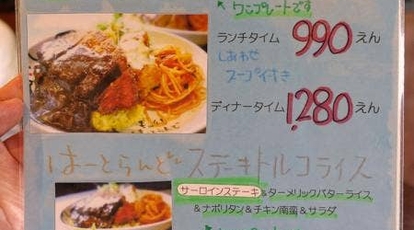 ワンプレートです
ランチタイム 990えん
しあわせ
スープ付き
ディナータイム 1,280えん
はーとらんど ステーキトルコライス
サーロインステーキ&ターメリックバターライス
&ナポリタン&チキン南蛮&サラダ